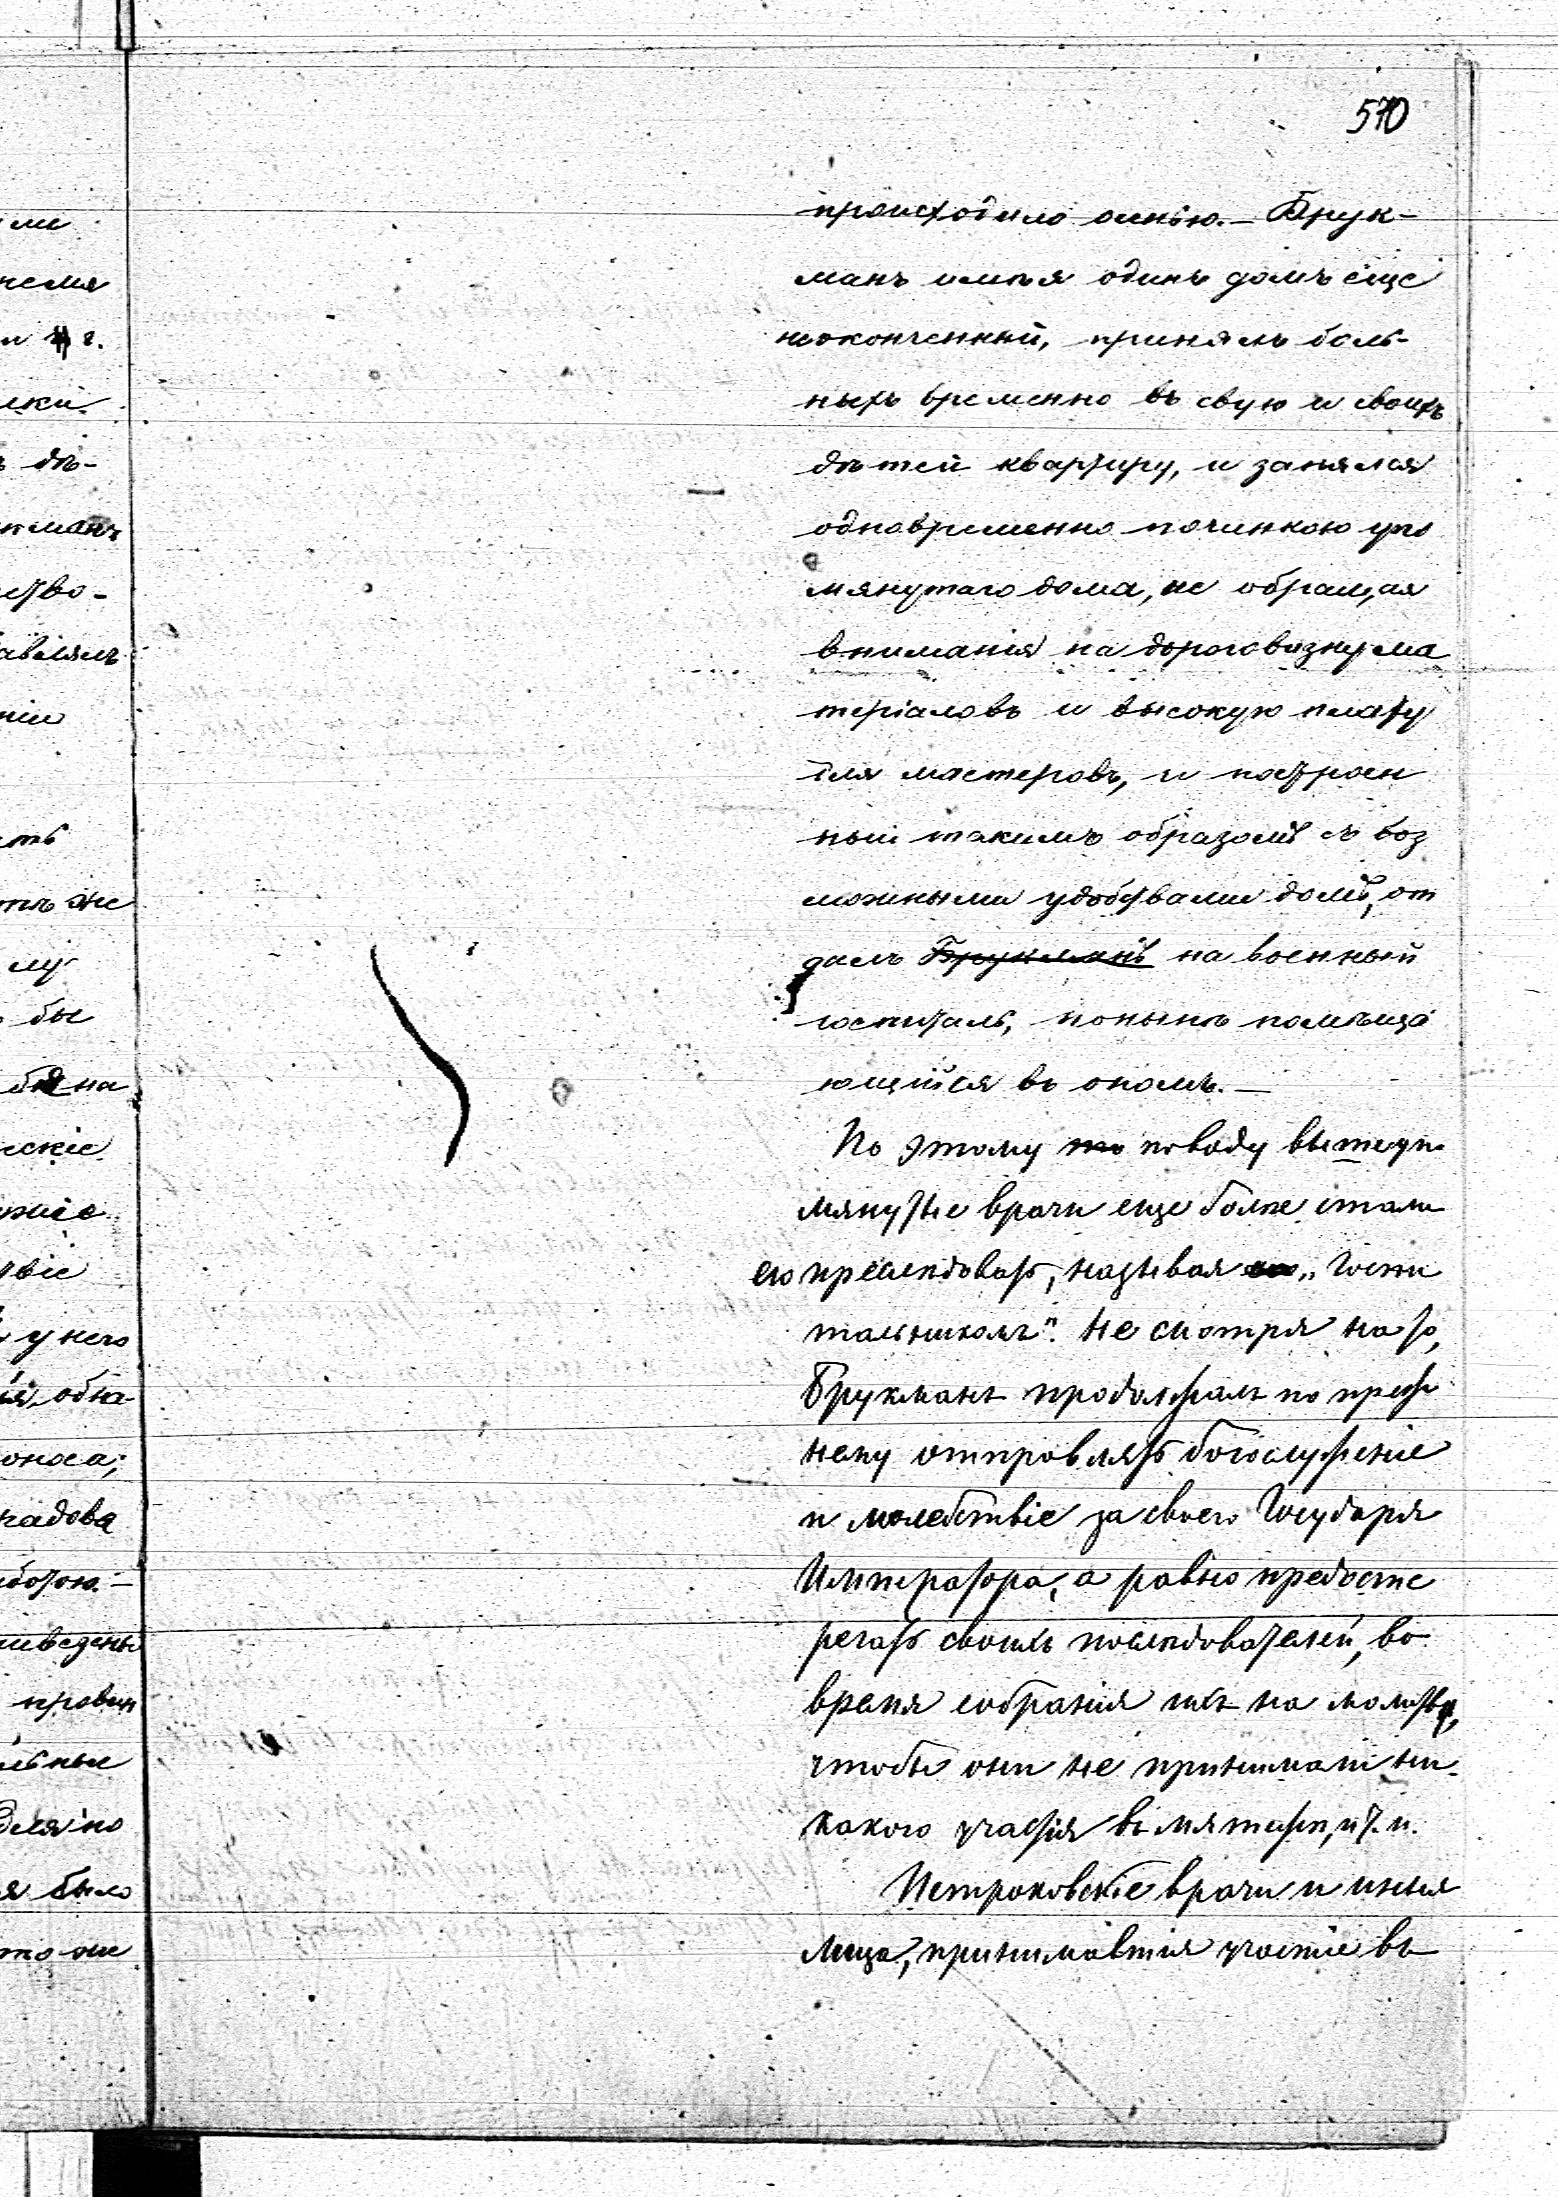 570
происходило осенью. — Брук-
манъ имѣя одинъ домъ еще
неоконченный, принялъ боль-
ныхъ временно въ свую и своихъ
дѣтей квартиру, и занялся
одновременно починкою упо
мянутаго дома, не обращая
вниманія на дороговизну ма
теріаловъ и высокую плату
для мастеровъ, и построен
ный такимъ образомъ съ воз
можными удобствами домъ, от
далъ Брукманъ на военный
госпиталь, понынѣ помѣща
ющійся въ ономъ. —
По этому поводу вышеупо
мянутые врачи еще болѣе стали
его преслѣдовать, называя „Госпи
тальникомъ“. Не смотря на то,
Брукманъ продолжалъ по преж
нему отправлять богослуженіе
и молебствіе за своего Государя
Императора, а равно предосте
регать своихъ послѣдователей, во
время собранія ихъ на молитву,
чтобы они не принимали ни-
какого участія въ мятежѣ, и т. п.
Петроковскіе врачи и иныя
лица, принимавшія участіе въ